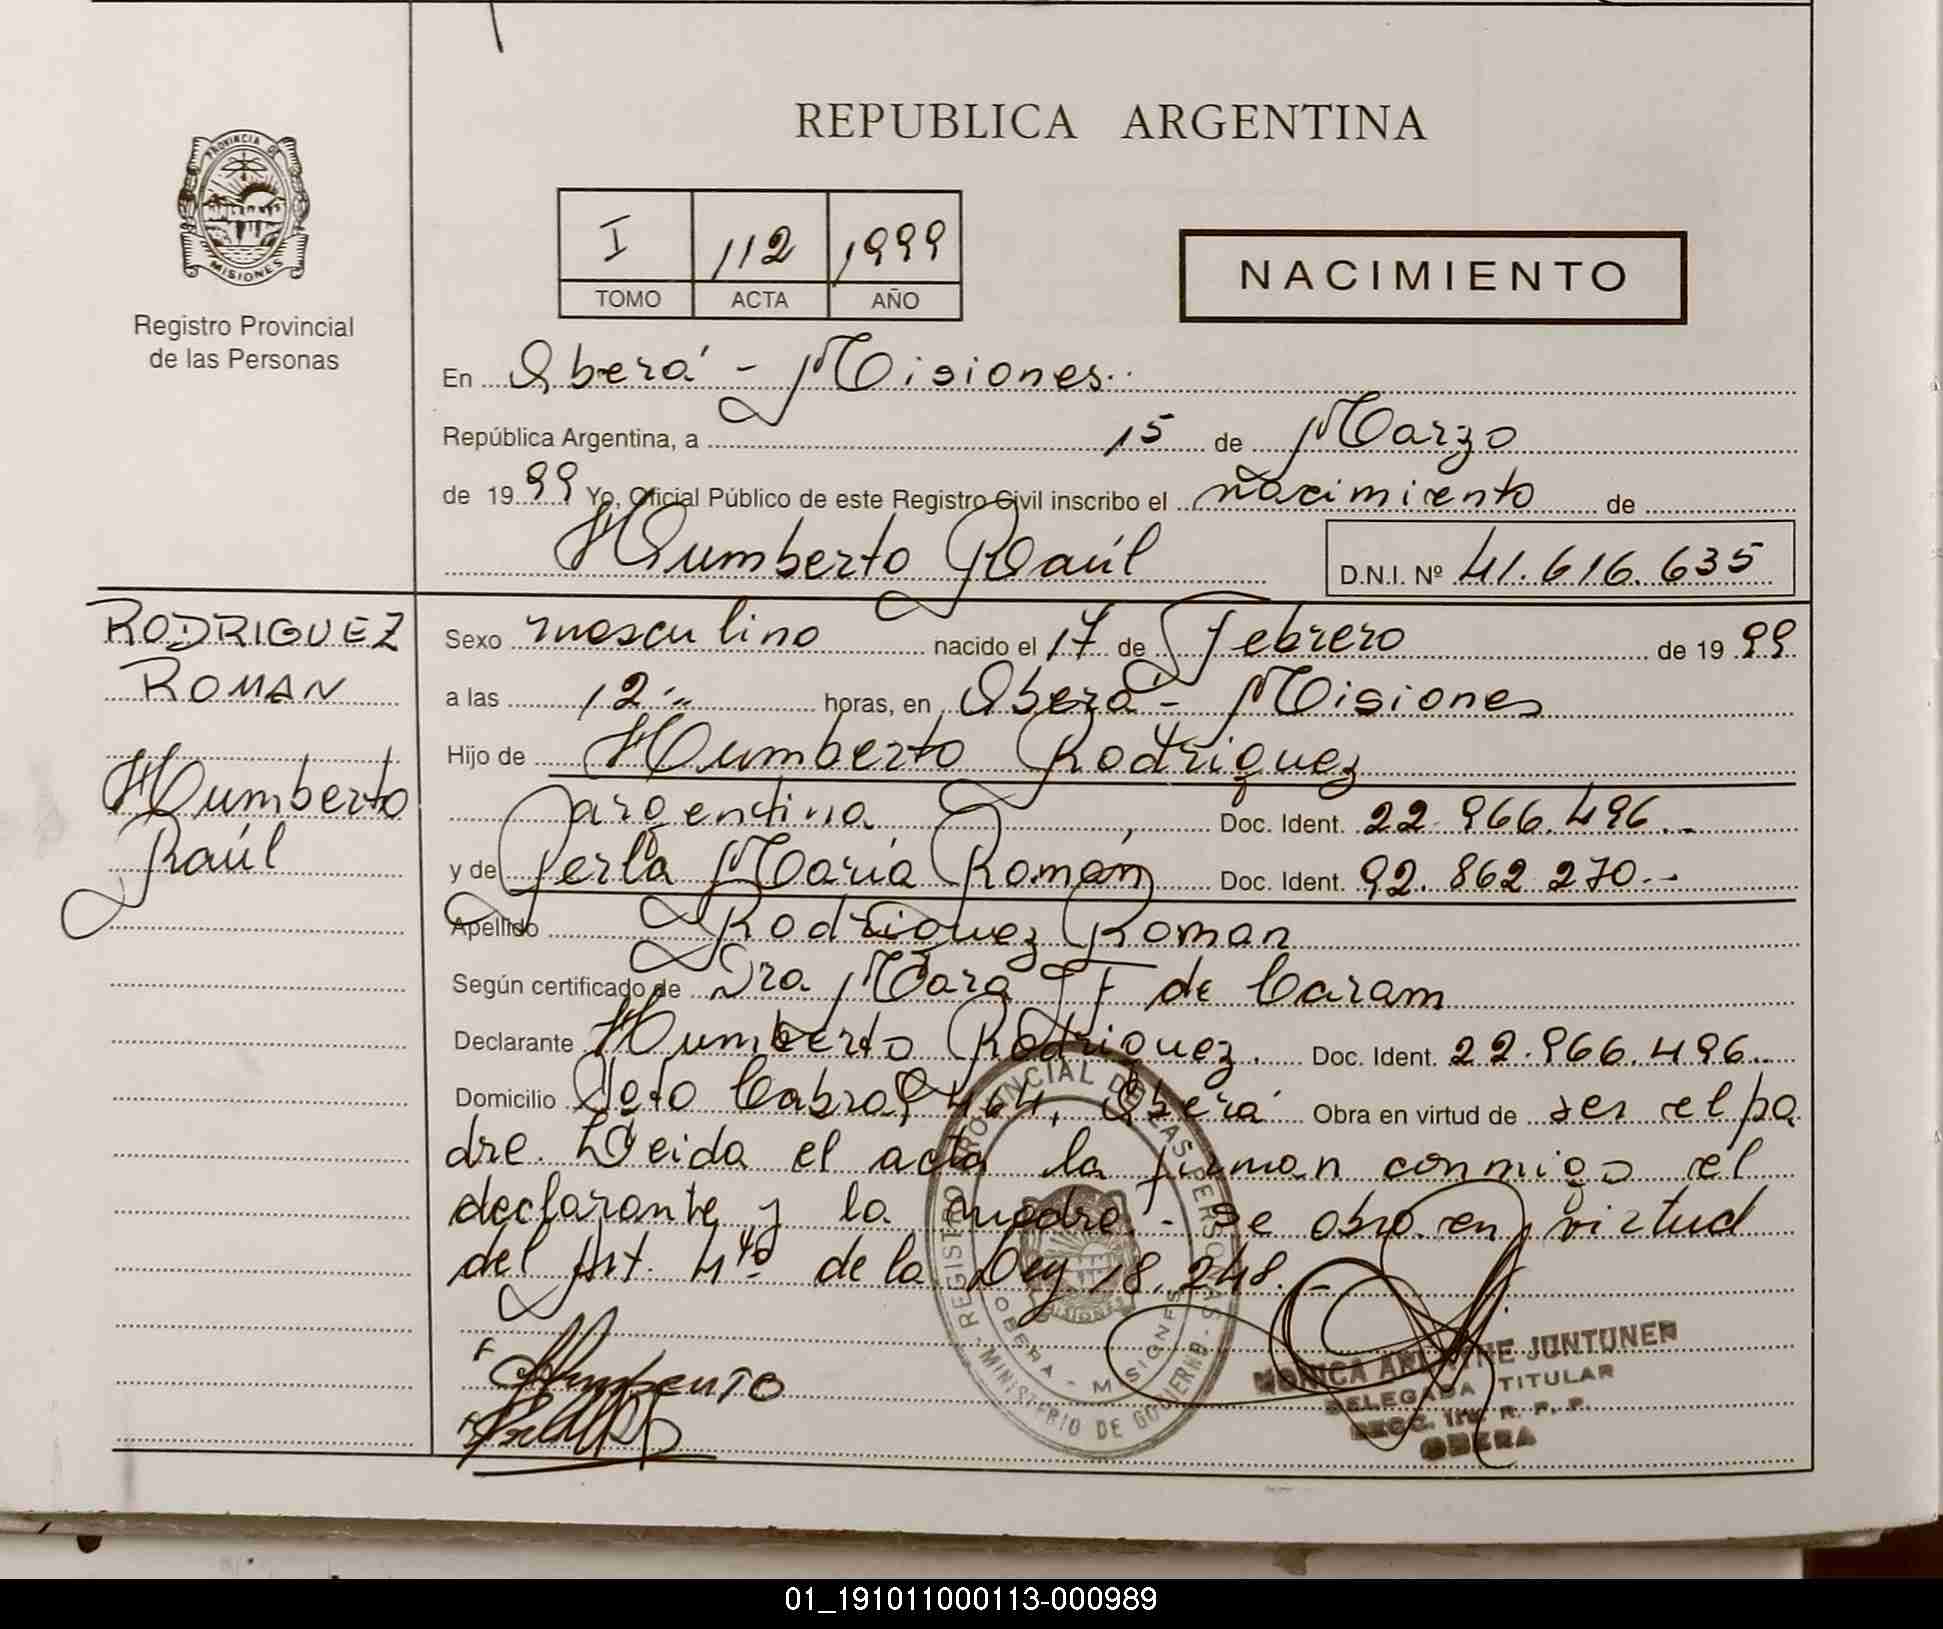 REPUBLICA ARGENTINA
PROVINCIA DE
MISIONES
Registro Provincial
de las Personas
I 112 1999
TOMO ACTA AÑO
NACIMIENTO
En Oberá - Misiones
República Argentina, a 15 de Marzo
de 1999 Yo, Oficial Público de este Registro Civil inscribo el nacimiento de
Humberto Raúl D.N.I. Nº 41.616.635
RODRIGUEZ
ROMAN
Humberto
Raúl
Sexo masculino nacido el 17 de Febrero de 1999
a las 12 horas, en Oberá - Misiones
Hijo de Humberto Rodriguez
argentina, Doc. Ident. 22.966.496
y de Perla María Román Doc. Ident. 92.862.270
Apellido Rodriguez Roman
Según certificado de Dra Mara F de Caram
Declarante Humberto Rodriguez. Doc. Ident. 22.966.496
Domicilio Cabral 464, Oberá Obra en virtud de ser el pa
dre. Leida el acta la firman conmigo el
declarante y la madre. - Se obra en virtud
del Art. 4to de la Ley 18.248. -
REGISTRO PROVINCIAL DE LAS PERSONAS
OBERA - MISIONES
MINISTERIO DE GOBIERNO
MONICA JUNTUNEN
DELEGADA TITULAR
R. P. P.
OBERA
01_191011000113-000989